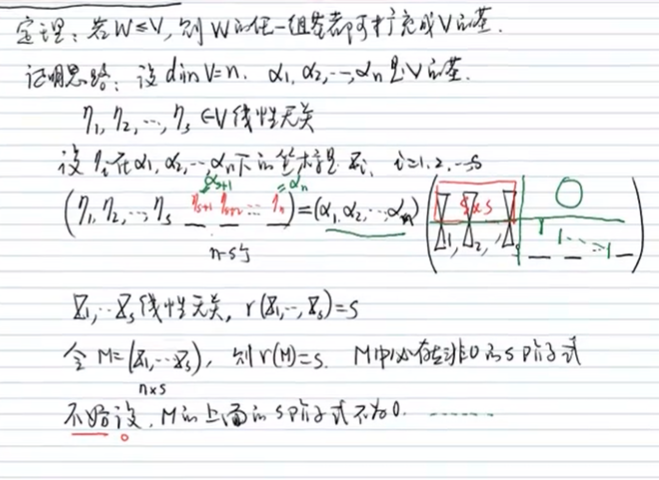 定理：若W≤V，则W的任一组基都可扩充成V的基.
证明思路：设dimV=n. α₁, α₂, ⋯, αₙ是V的基.
η₁, η₂, ⋯, ηₛ∈V线性无关
设ηᵢ在α₁, α₂, ⋯, αₙ下的坐标是Xᵢ, i=1, 2, ⋯s
αₛ₊₁ =αₙ
(η₁, η₂, ⋯, ηₛ ηₛ₊₁ ηₛ₊₂ ⋯ ηₙ)=(α₁, α₂, ⋯, αₙ) (X₁, X₂, ⋯, Xₛ s×s O 1 1 ⋯ 1)
n-s个
X₁, ⋯Xₛ线性无关, r(X₁, ⋯, Xₛ)=s
令M=(X₁, ⋯Xₛ), 则r(M)=s. M中必存在非0的s阶子式
n×s
不妨设, M的上面的s阶子式不为0. ⋯⋯